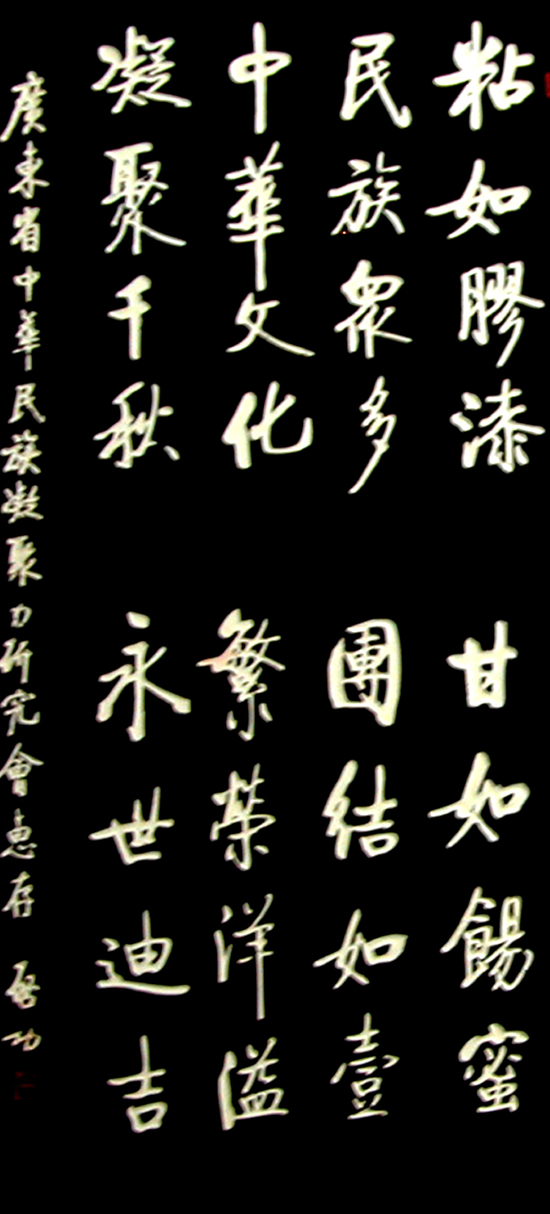 粘如膠漆 甘如餳蜜
民族眾多 團結如壹
中華文化 繁榮洋溢
凝聚千秋 永世迪吉
廣東省中華民族凝聚力研究會惠存 啟功